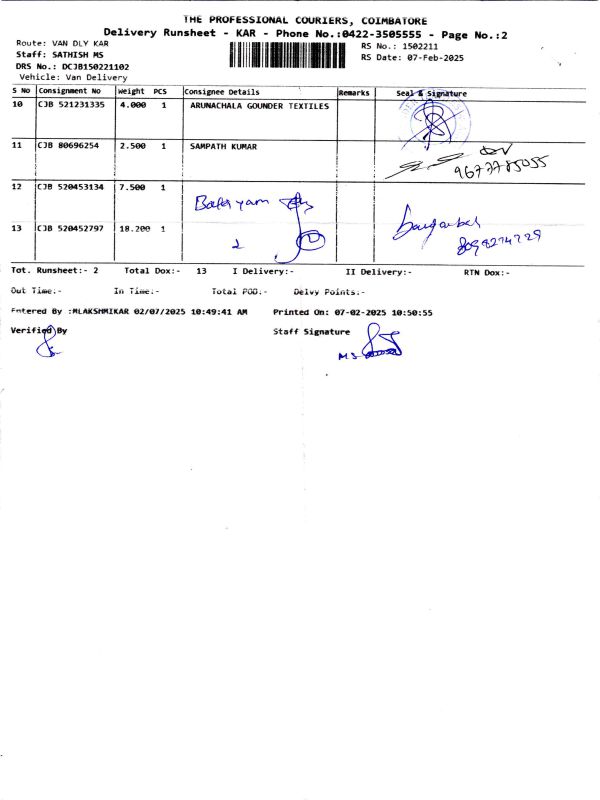 THE PROFESSIONAL COURIERS, COIMBATORE
Delivery Runsheet - KAR - Phone No.:0422-3505555 - Page No.:2
Route: VAN DLY KAR
RS No.: 1502211
Staff: SATHISH MS
RS Date: 07-Feb-2025
DRS No.: DCJB150221102
Vehicle: Van Delivery
S No Consignment No Weight PCS Consignee Details Remarks Seal & Signature
10 CJB 521231335 4.000 1 ARUNACHALA GOUNDER TEXTILES
11 CJB 80696254 2.500 1 SAMPATH KUMAR
12 CJB 520453134 7.500 1
13 CJB 520452797 18.200 1
2
Tot. Runsheet:- 2 Total Dox:- 13 I Delivery:- II Delivery:- RTN Dox:-
Out Time:- In Time:- Total POD:- Delvy Points:-
Entered By :MLAKSHMIKAR 02/07/2025 10:49:41 AM Printed On: 07-02-2025 10:50:55
Verified By Staff Signature
MS